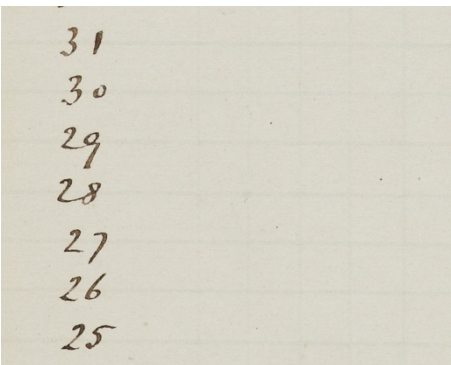 31
30
29
28
27
26
25